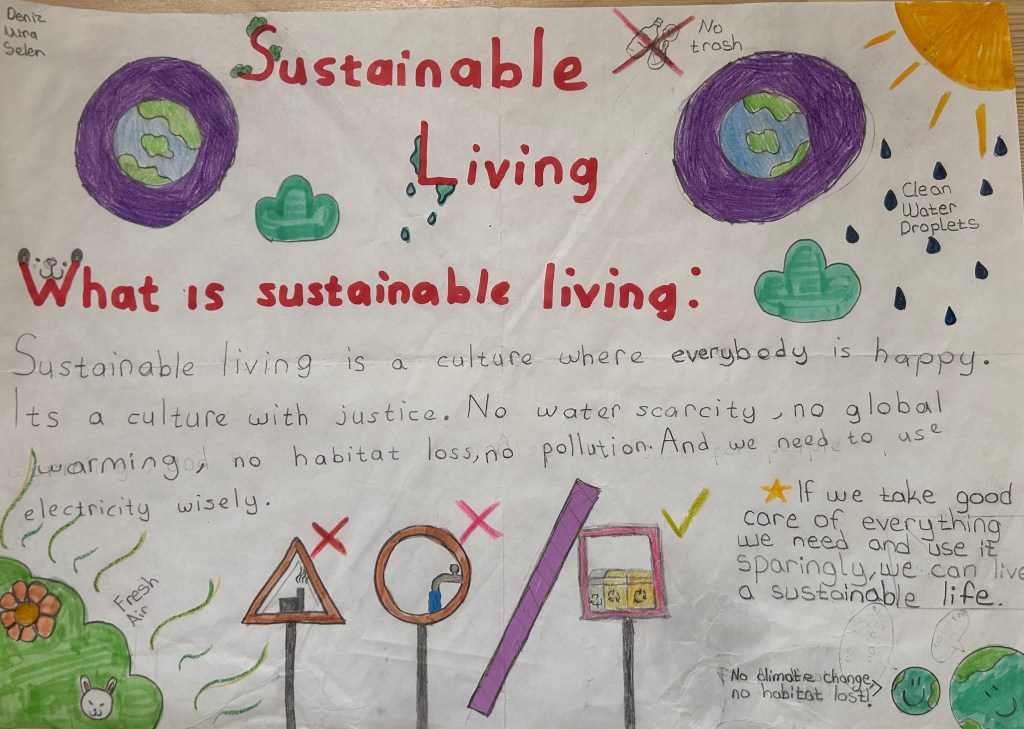 Deniz
Mira
Selen
Sustainable
Living
No
trash
Clean
Water
Droplets
What is sustainable living:
Sustainable living is a culture where everybody is happy.
Its a culture with justice. No water scarcity, no global
warming, no habitat loss, no pollution. And we need to use
electricity wisely.
If we take good
care of everything
we need and use it
sparingly, we can live
a sustainable life.
Fresh
Air
No climate change,
no habitat lost!